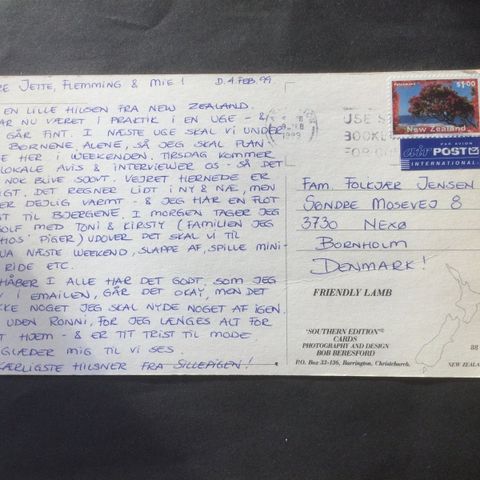 RE JETTE, FLEMMING & MIE! D. 4. FEB. 99.
EN LILLE HILSEN FRA NEW ZEALAND.
AR NU VÆRET I PRAKTIK I EN UGE - &
GÅR FINT. I NÆSTE UGE SKAL VI UNDER
BØRNENE, ALENE, SÅ JEG SKAL PLAN
E HER I WEEKENDEN. TIRSDAG KOMMER
LOKALE AVIS & INTERVIEWER OS - SÅ DET
NOK BLIVE SJOVT. VEJRET HERNEDE ER
IGT, DET REGNER LIDT I NY & NÆ, MEN
ER DEJLIG VARMT - & JEG HAR EN FLOT
T TIL BJERGENE. I MORGEN TAGER JEG
OLF MED TONI & KIRSTY (FAMILIEN JEG
HOS' PIGER) UDOVER DET SKAL VI TIL
UA NÆSTE WEEKEND, SLAPPE AF, SPILLE MINI-
RIDE ETC.
HÅBER I ALLE HAR DET GODT, SOM JEG
V I EMAILEN, GÅR DET OKAY, MEN DET
KKE NOGET JEG SKAL NYDE NOGET AF IGEN.
UDEN RONNI, FOR JEG LÆNGES ALT FOR
T HJEM - & ER TIT TRIST TIL MODE
GLÆDER MIG TIL VI SES.
KÆRLIGSTE HILSNER FRA SILLEPIGEN!
1999
USE
BOOKL
FO
$1.00
New Zealand
PAR AVION
air POST
INTERNATIONAL
FAM. FOLKJÆR JENSEN
SØNDRE MOSEVEJ 8
3730 NEXØ
BORNHOLM
DENMARK!
FRIENDLY LAMB
'SOUTHERN EDITION'©
CARDS
PHOTOGRAPHY AND DESIGN
BOB BERESFORD
P.O. Box 33-136, Barrington, Christchurch.
88
NEW ZEALA